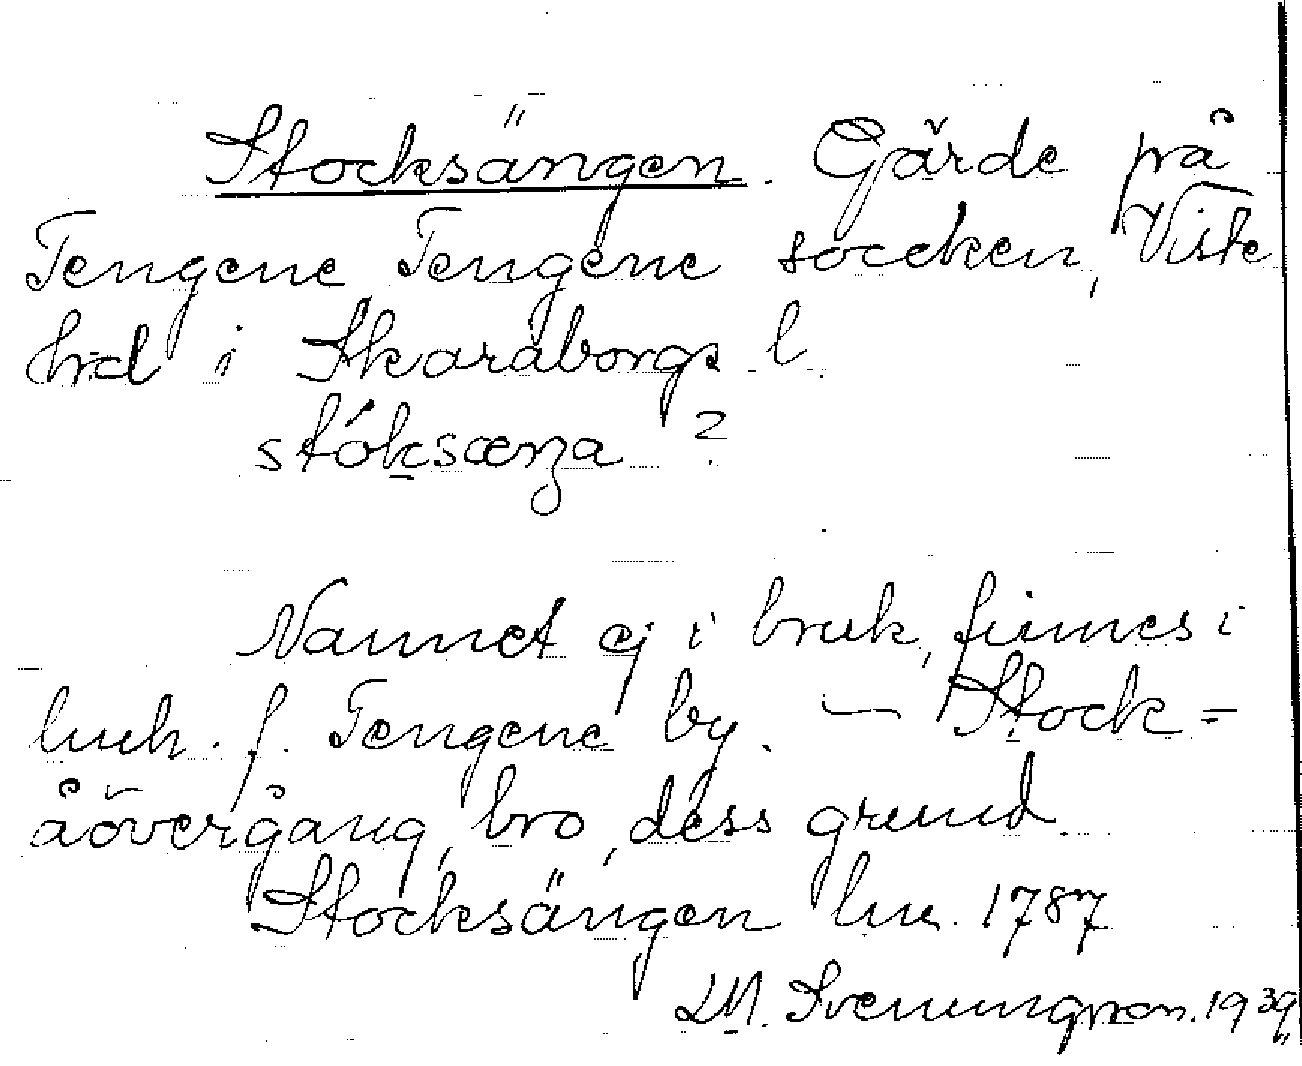 Stocksängen. Gärde på
Tengene Tengene socken, Viste
hrd i Skaraborgs l.
stóksæŋa ?
Namnet ej i bruk, finnes i
luch. f. Tengene by. — Stock =
åövergång, bro, dess grund
Stocksängen lm. 1787
LM. Svenungsson. 1939